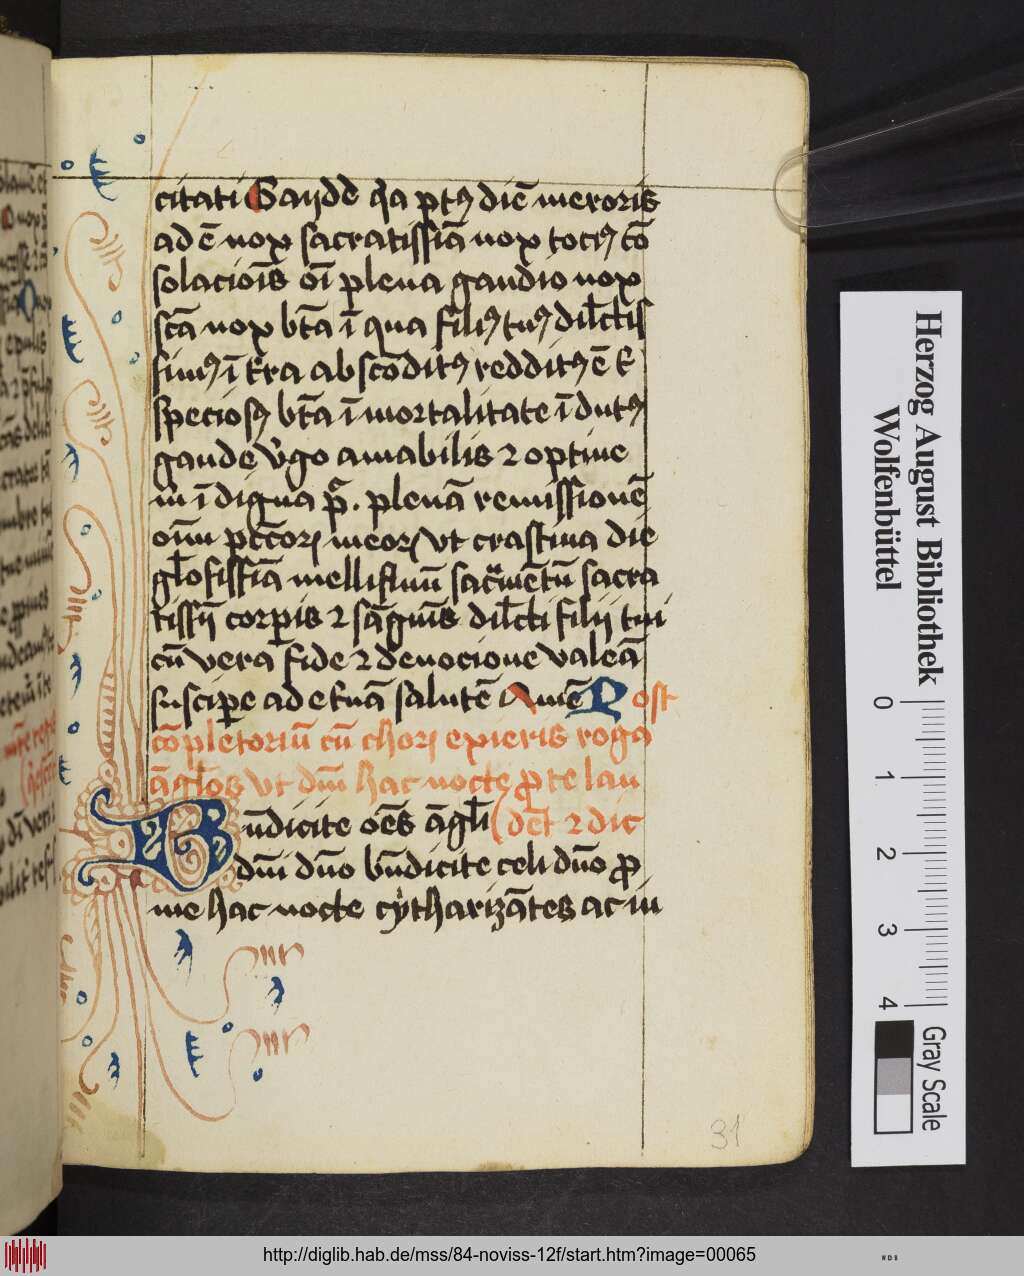 citati Gaude q̄a pᵗ9 diē meroris
ad ē nox sacratissīa nox toci9 cō
solaciōis oī plena gaudio nox
scā nox btā ī qua fili9 tu9 dilcīs
simus ī tr̄a abscōdit9 reddit9 ē t̄
specios9 btā īmortalitate īdut9
gaude v̄go amabilis ⁊ optine
m̄ īdigna pᵃ. plenā remissionē
oīm pccōrꝝ meorꝝ vt crastina die
glosissīa mellifluū sacᵃmētū sacra
tissī corpis ⁊ sāguīs dilcti filij tui
cū vera fide ⁊ deuocione valeā
suscipe ad et̄nā salutē Amē Post
cōpletoriū cū chorꝝ exieris roga
āglos vt dm̄ hac nocte p te lau
Bn̄dicite oēs āgli (dēt ⁊ dic
dm̄ dn̄o bn̄dicite celi dn̄o p
me hac nocte cytharizātes ac iu
31
Herzog August Bibliothek
Wolfenbüttel
0 1 2 3 4
Gray Scale
http://diglib.hab.de/mss/84-noviss-12f/start.htm?image=00065